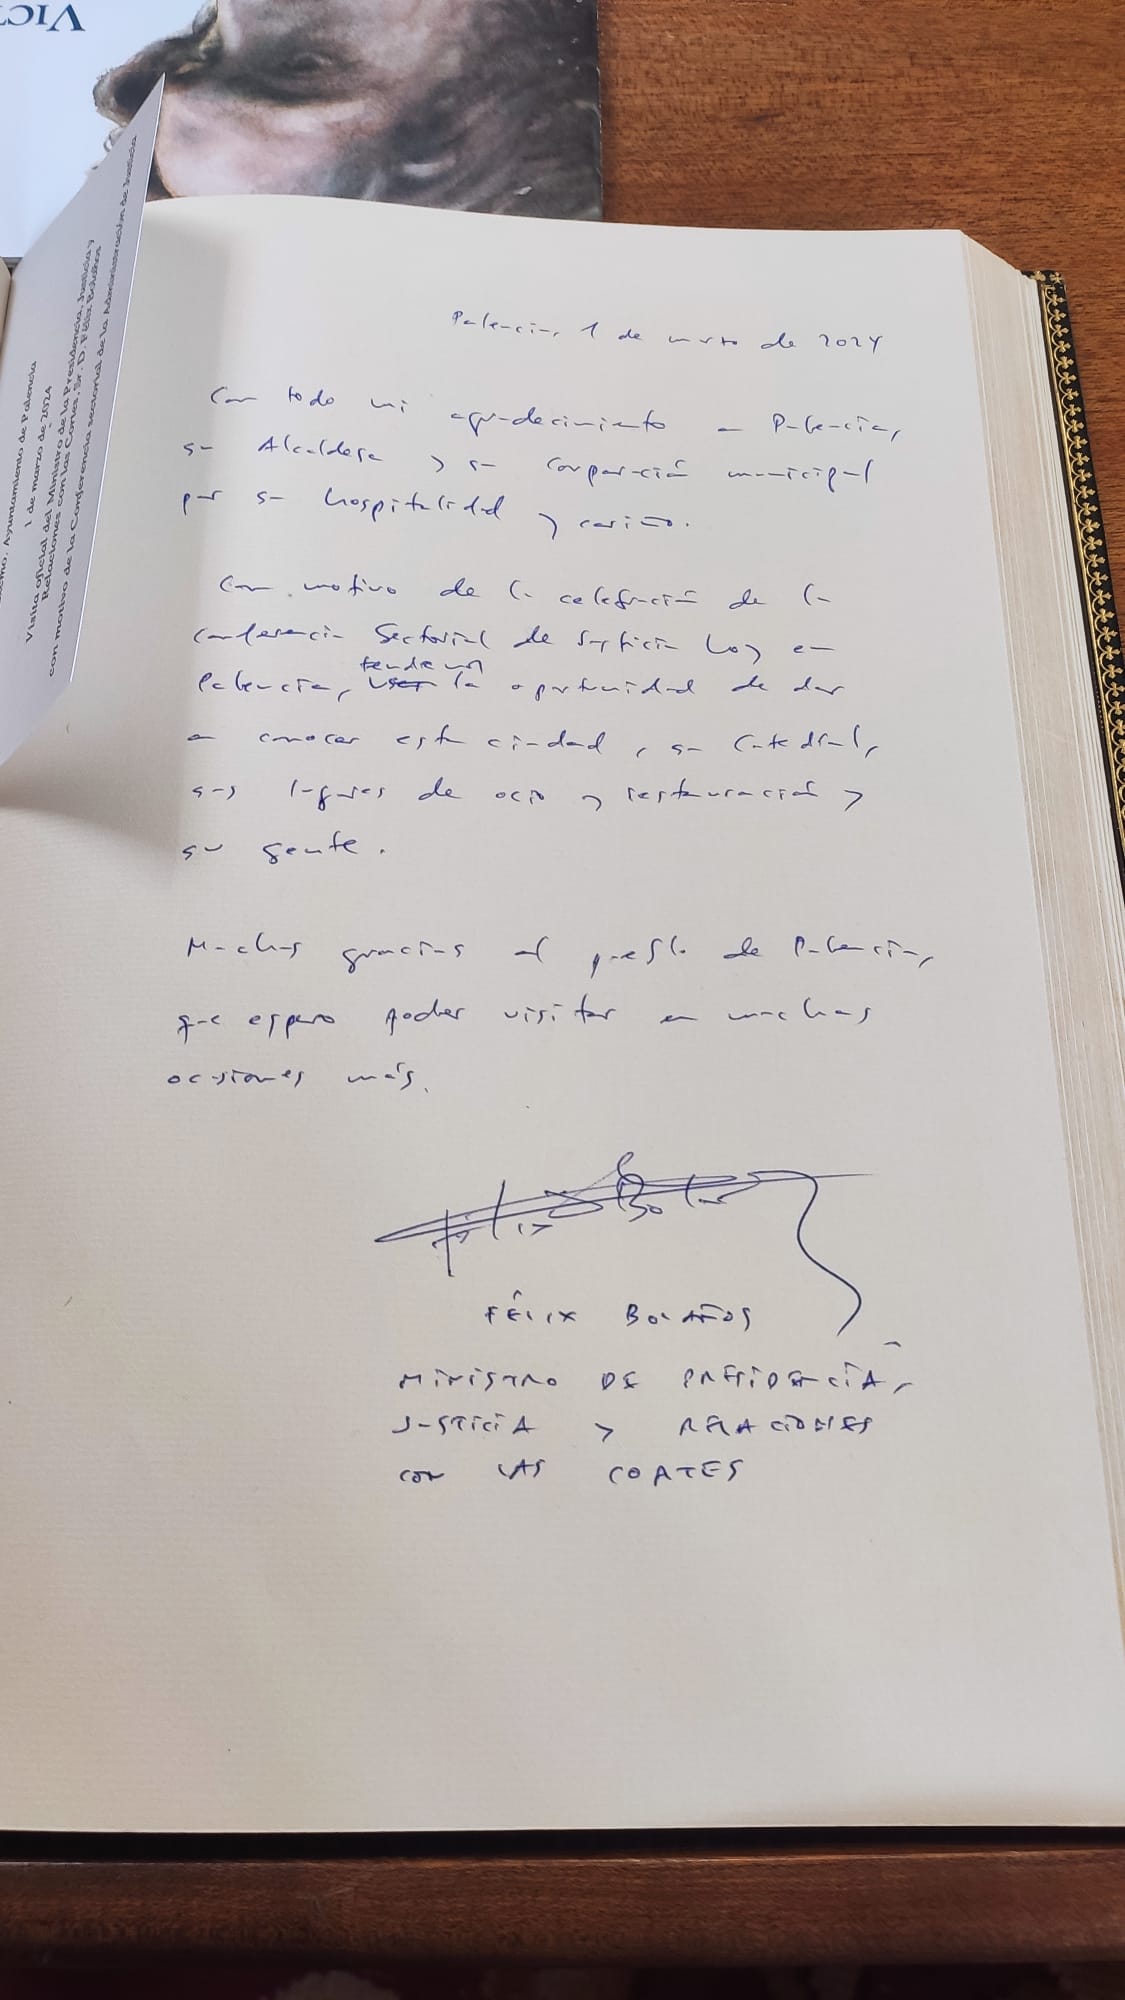 VICT
Excmo. Ayuntamiento de Palencia
1 de marzo de 2024
Visita oficial del Ministro de la Presidencia, Justicia y
Relaciones con las Cortes, Sr. D. Félix Bolaños
con motivo de la Conferencia sectorial de la Administración de Justicia
Palencia, 1 de marzo de 2024
Con todo mi agradecimiento a Palencia,
su Alcaldesa y su corporación municipal
por su hospitalidad y cariño.
Con motivo de la celebración de la
Conferencia Sectorial de Justicia hoy en
tendemos
Palencia, la oportunidad de dar
a conocer esta ciudad, su Catedral,
sus lugares de ocio y restauración y
su gente.
Muchas gracias al pueblo de Palencia,
que espero poder visitar en muchas
ocasiones más.
Félix Bolaños
FÉLIX BOLAÑOS
MINISTRO DE PRESIDENCIA,
JUSTICIA Y RELACIONES
CON LAS CORTES